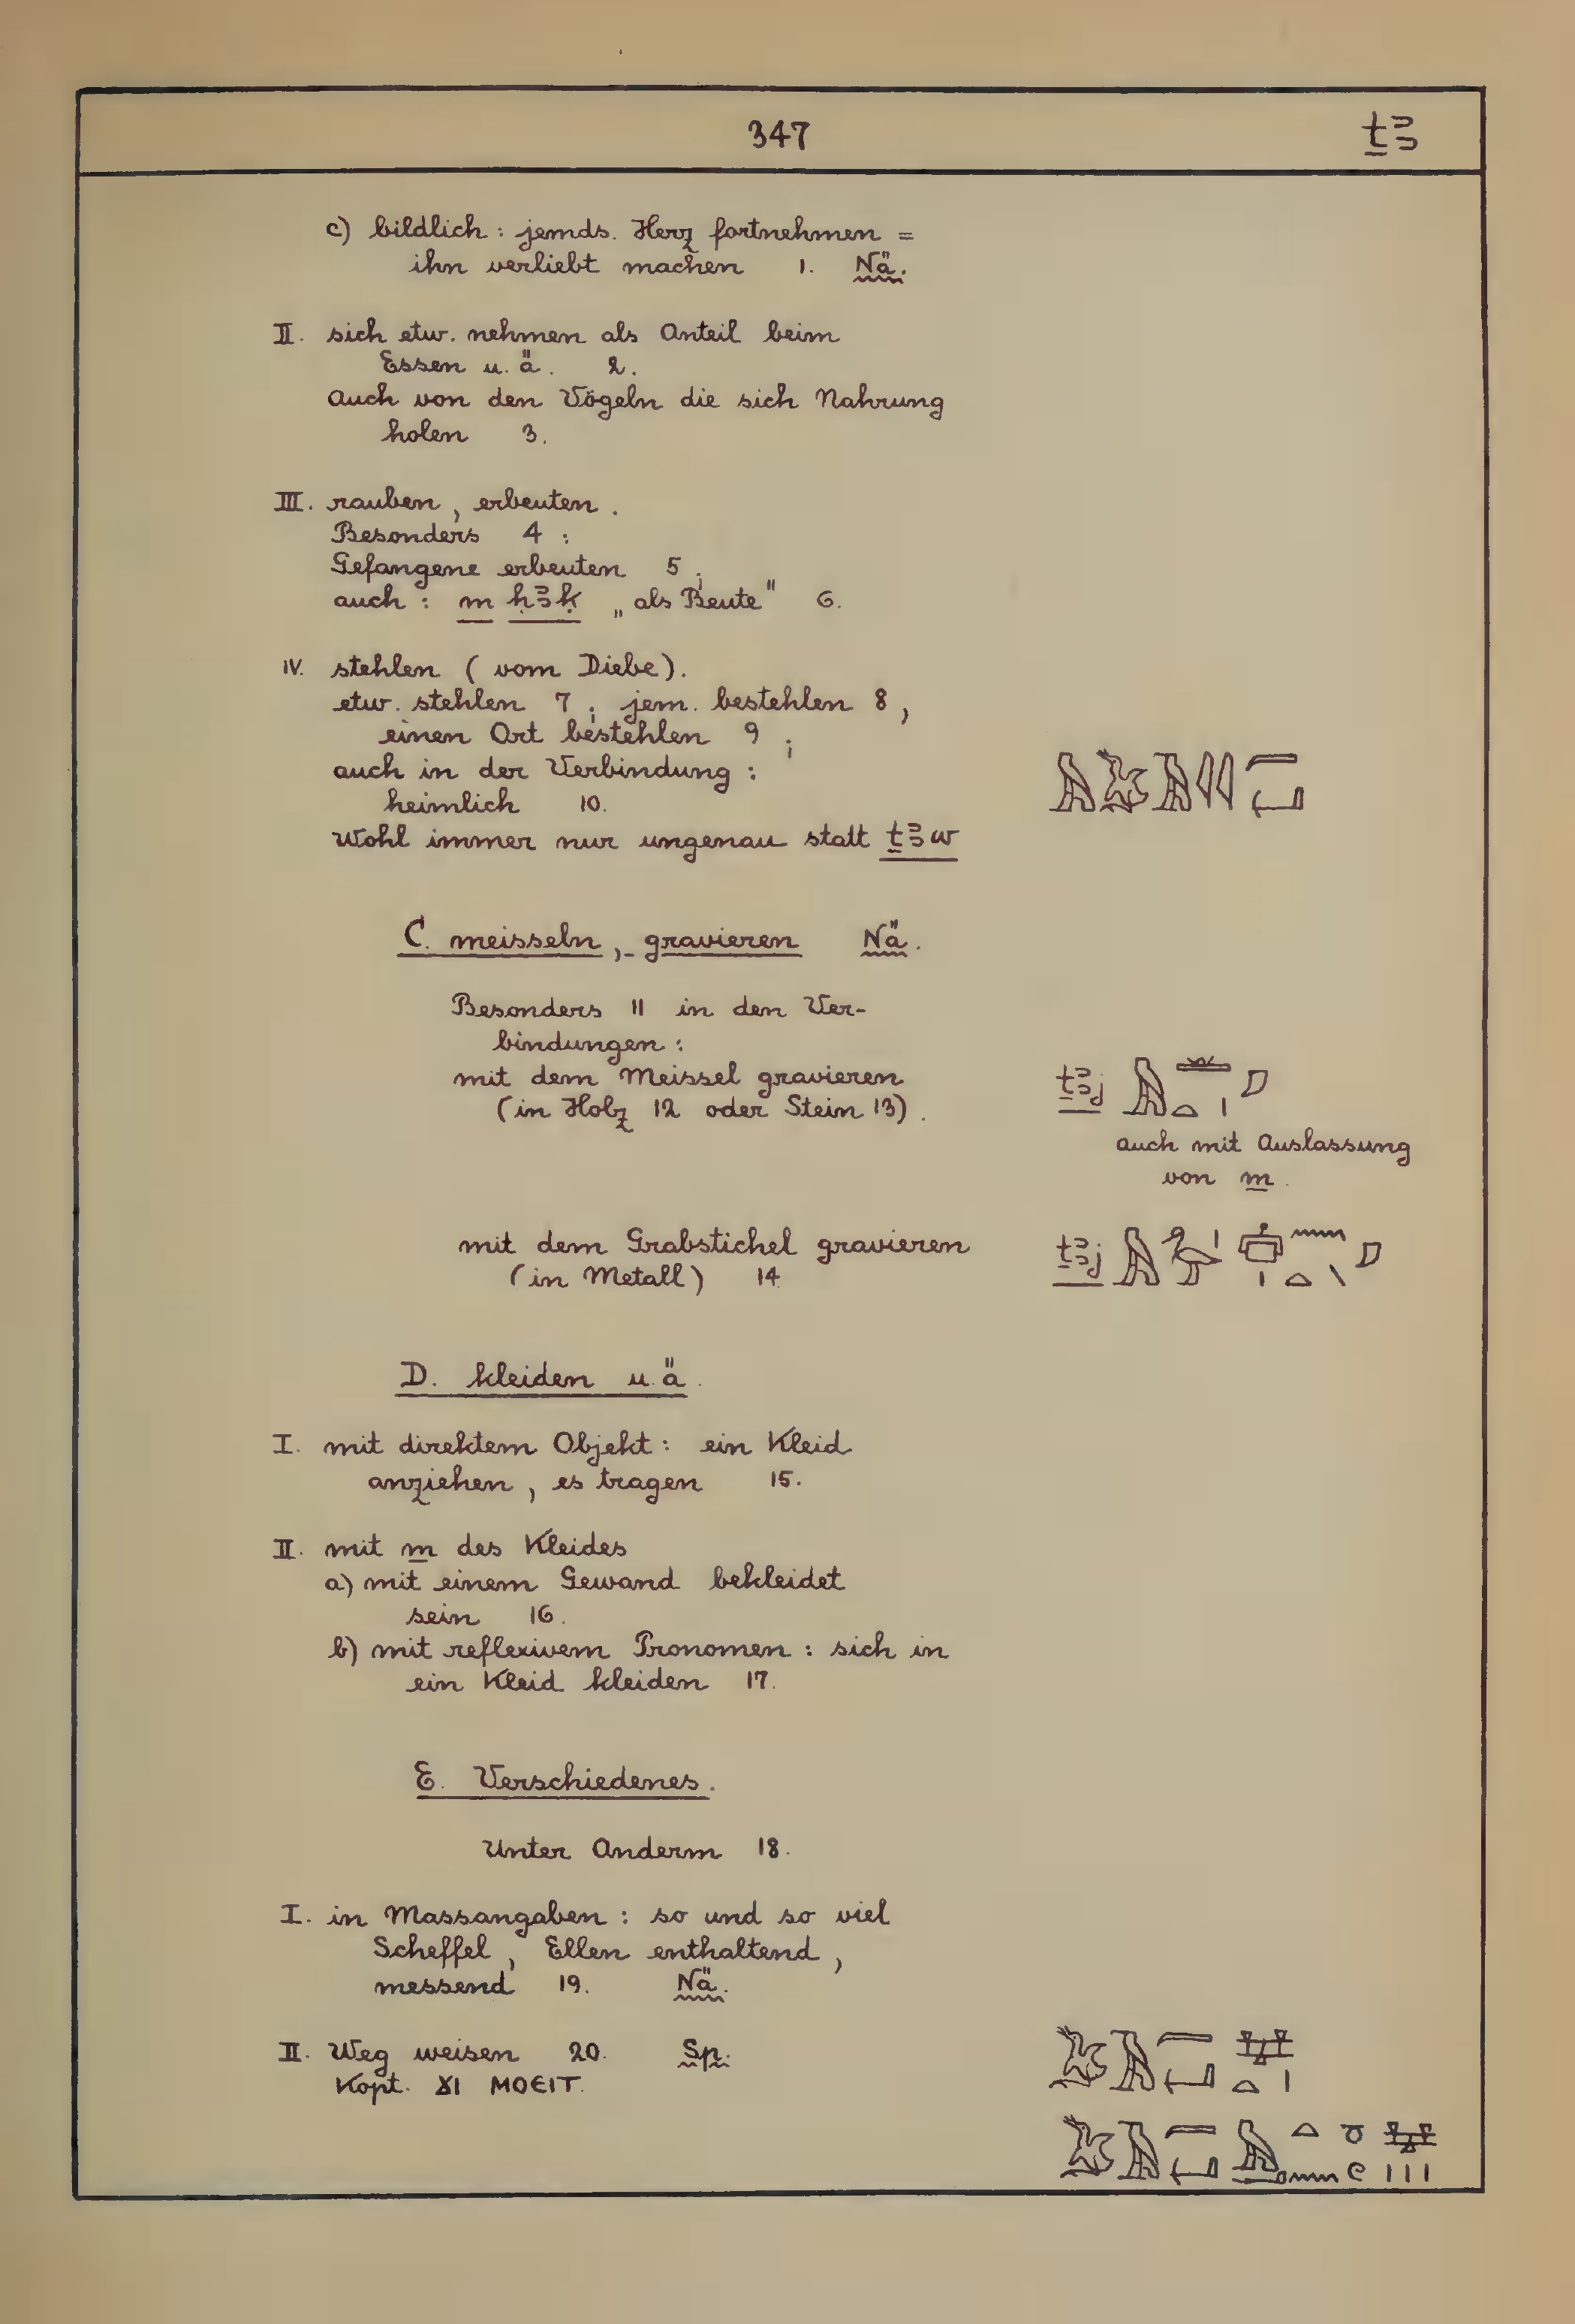 347 ṯꜣ
c) bildlich : jemds. Herz fortnehmen =
ihn verliebt machen 1. Nä.
II. sich etw. nehmen als Anteil beim
Essen u. ä. 2.
Auch von den Vögeln die sich Nahrung
holen 3.
III. rauben, erbeuten.
Besonders 4 :
Gefangene erbeuten 5 ;
auch : m ḥꜣḳ „als Beute" 6.
IV. stehlen ( vom Diebe).
etw. stehlen 7 ; jem. bestehlen 8 ,
einen Ort bestehlen 9 ;
auch in der Verbindung :
heimlich 10.
Wohl immer nur ungenau statt ṯꜣw
C. meisseln, gravieren Nä.
Besonders 11 in den Ver-
bindungen :
mit dem Meissel gravieren ṯꜣj
(in Holz 12 oder Stein 13).
auch mit Auslassung
von m.
mit dem Grabstichel gravieren ṯꜣj
(in Metall) 14
D. kleiden u. ä.
I. mit direktem Objekt : ein Kleid
anziehen, es tragen 15.
II. mit m des Kleides
a) mit einem Gewand bekleidet
sein 16.
b) mit reflexivem Pronomen : sich in
ein Kleid kleiden 17.
E. Verschiedenes.
Unter Anderm 18.
I. in Massangaben : so und so viel
Scheffel, Ellen enthaltend,
messend 19. Nä.
II. Weg weisen 20. Sp.
Kopt. ϪΙ ΜΟЄΙΤ.